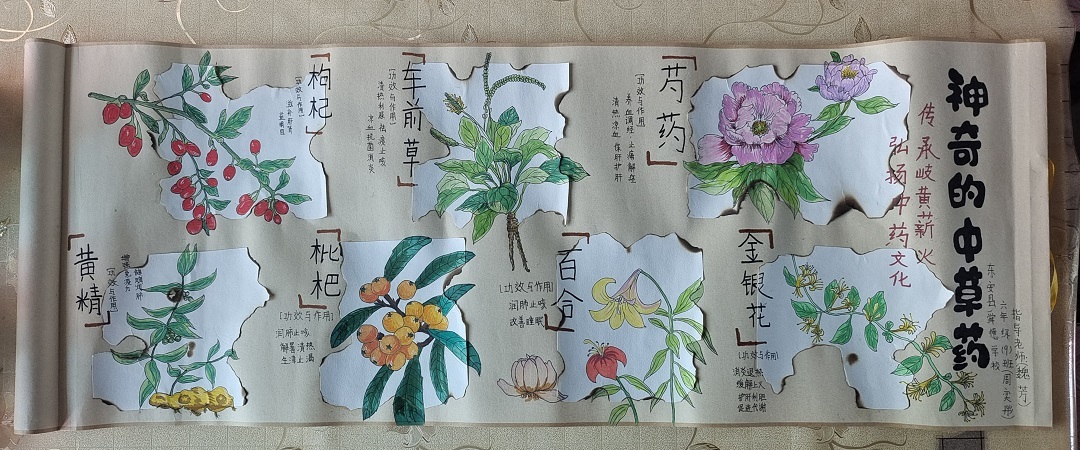 神奇的中草药
传承岐黄薪火
弘扬中药文化
东安县舜德学校
六年级(9)班周奕彤
指导老师魏芳
芍药
[功效与作用]
养血调经 止痛解痉
清热凉血 保肝护肝
车前草
[功效与作用]
清热利尿 祛痰止咳
凉血抗菌消炎
枸杞
[功效与作用]
滋补肝肾
益精明目
金银花
[功效与作用]
消炎退热
缓解上火
护肝利胆
促进代谢
百合
[功效与作用]
润肺止咳
改善睡眠
枇杷
[功效与作用]
润肺止咳
解暑清热
生津止渴
黄精
[功效与作用]